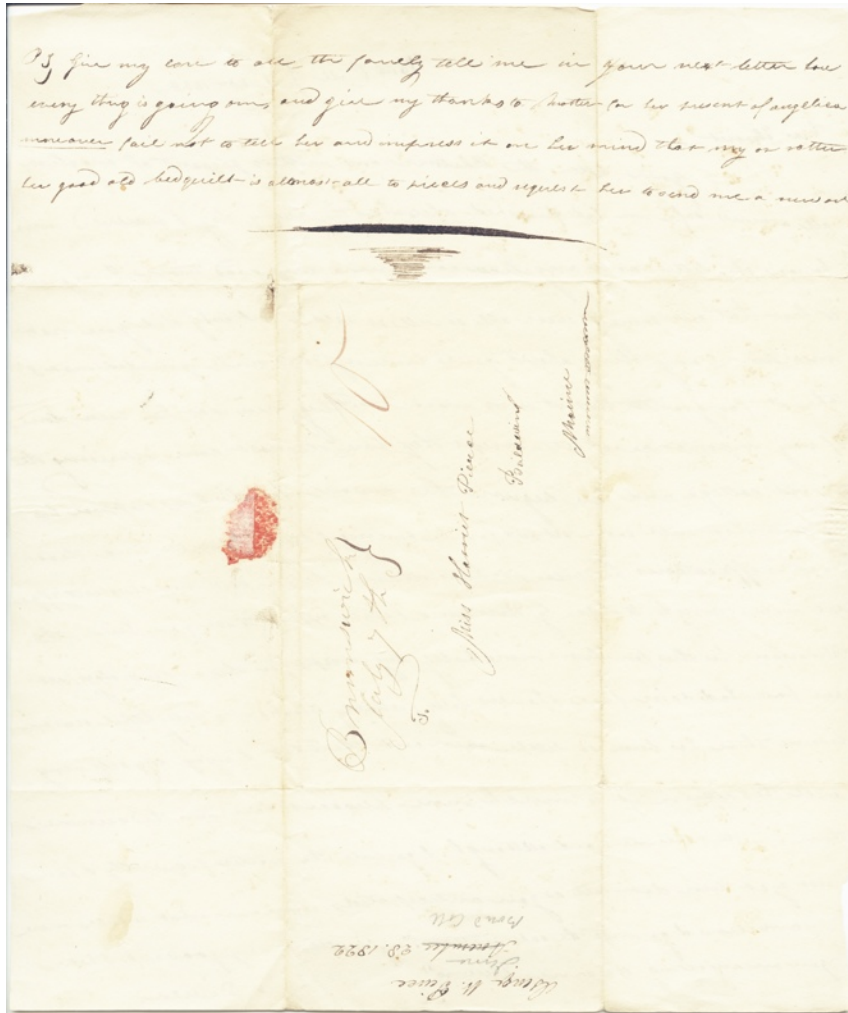 PS, Give my love to all the family tell me in your next letter how
every thing is going on, and give my thanks to Mother for her present of angelica
moreover fail not to tell her and impress it on her mind that my or rather
her good old bedquilt is almost all to pieces and request her to send me a new one
10
Brunswick
July 7th
Miss Harriet Peirce
Baldwin
Maine
Bowd Coll
November 28. 1822
June
George W. Peirce